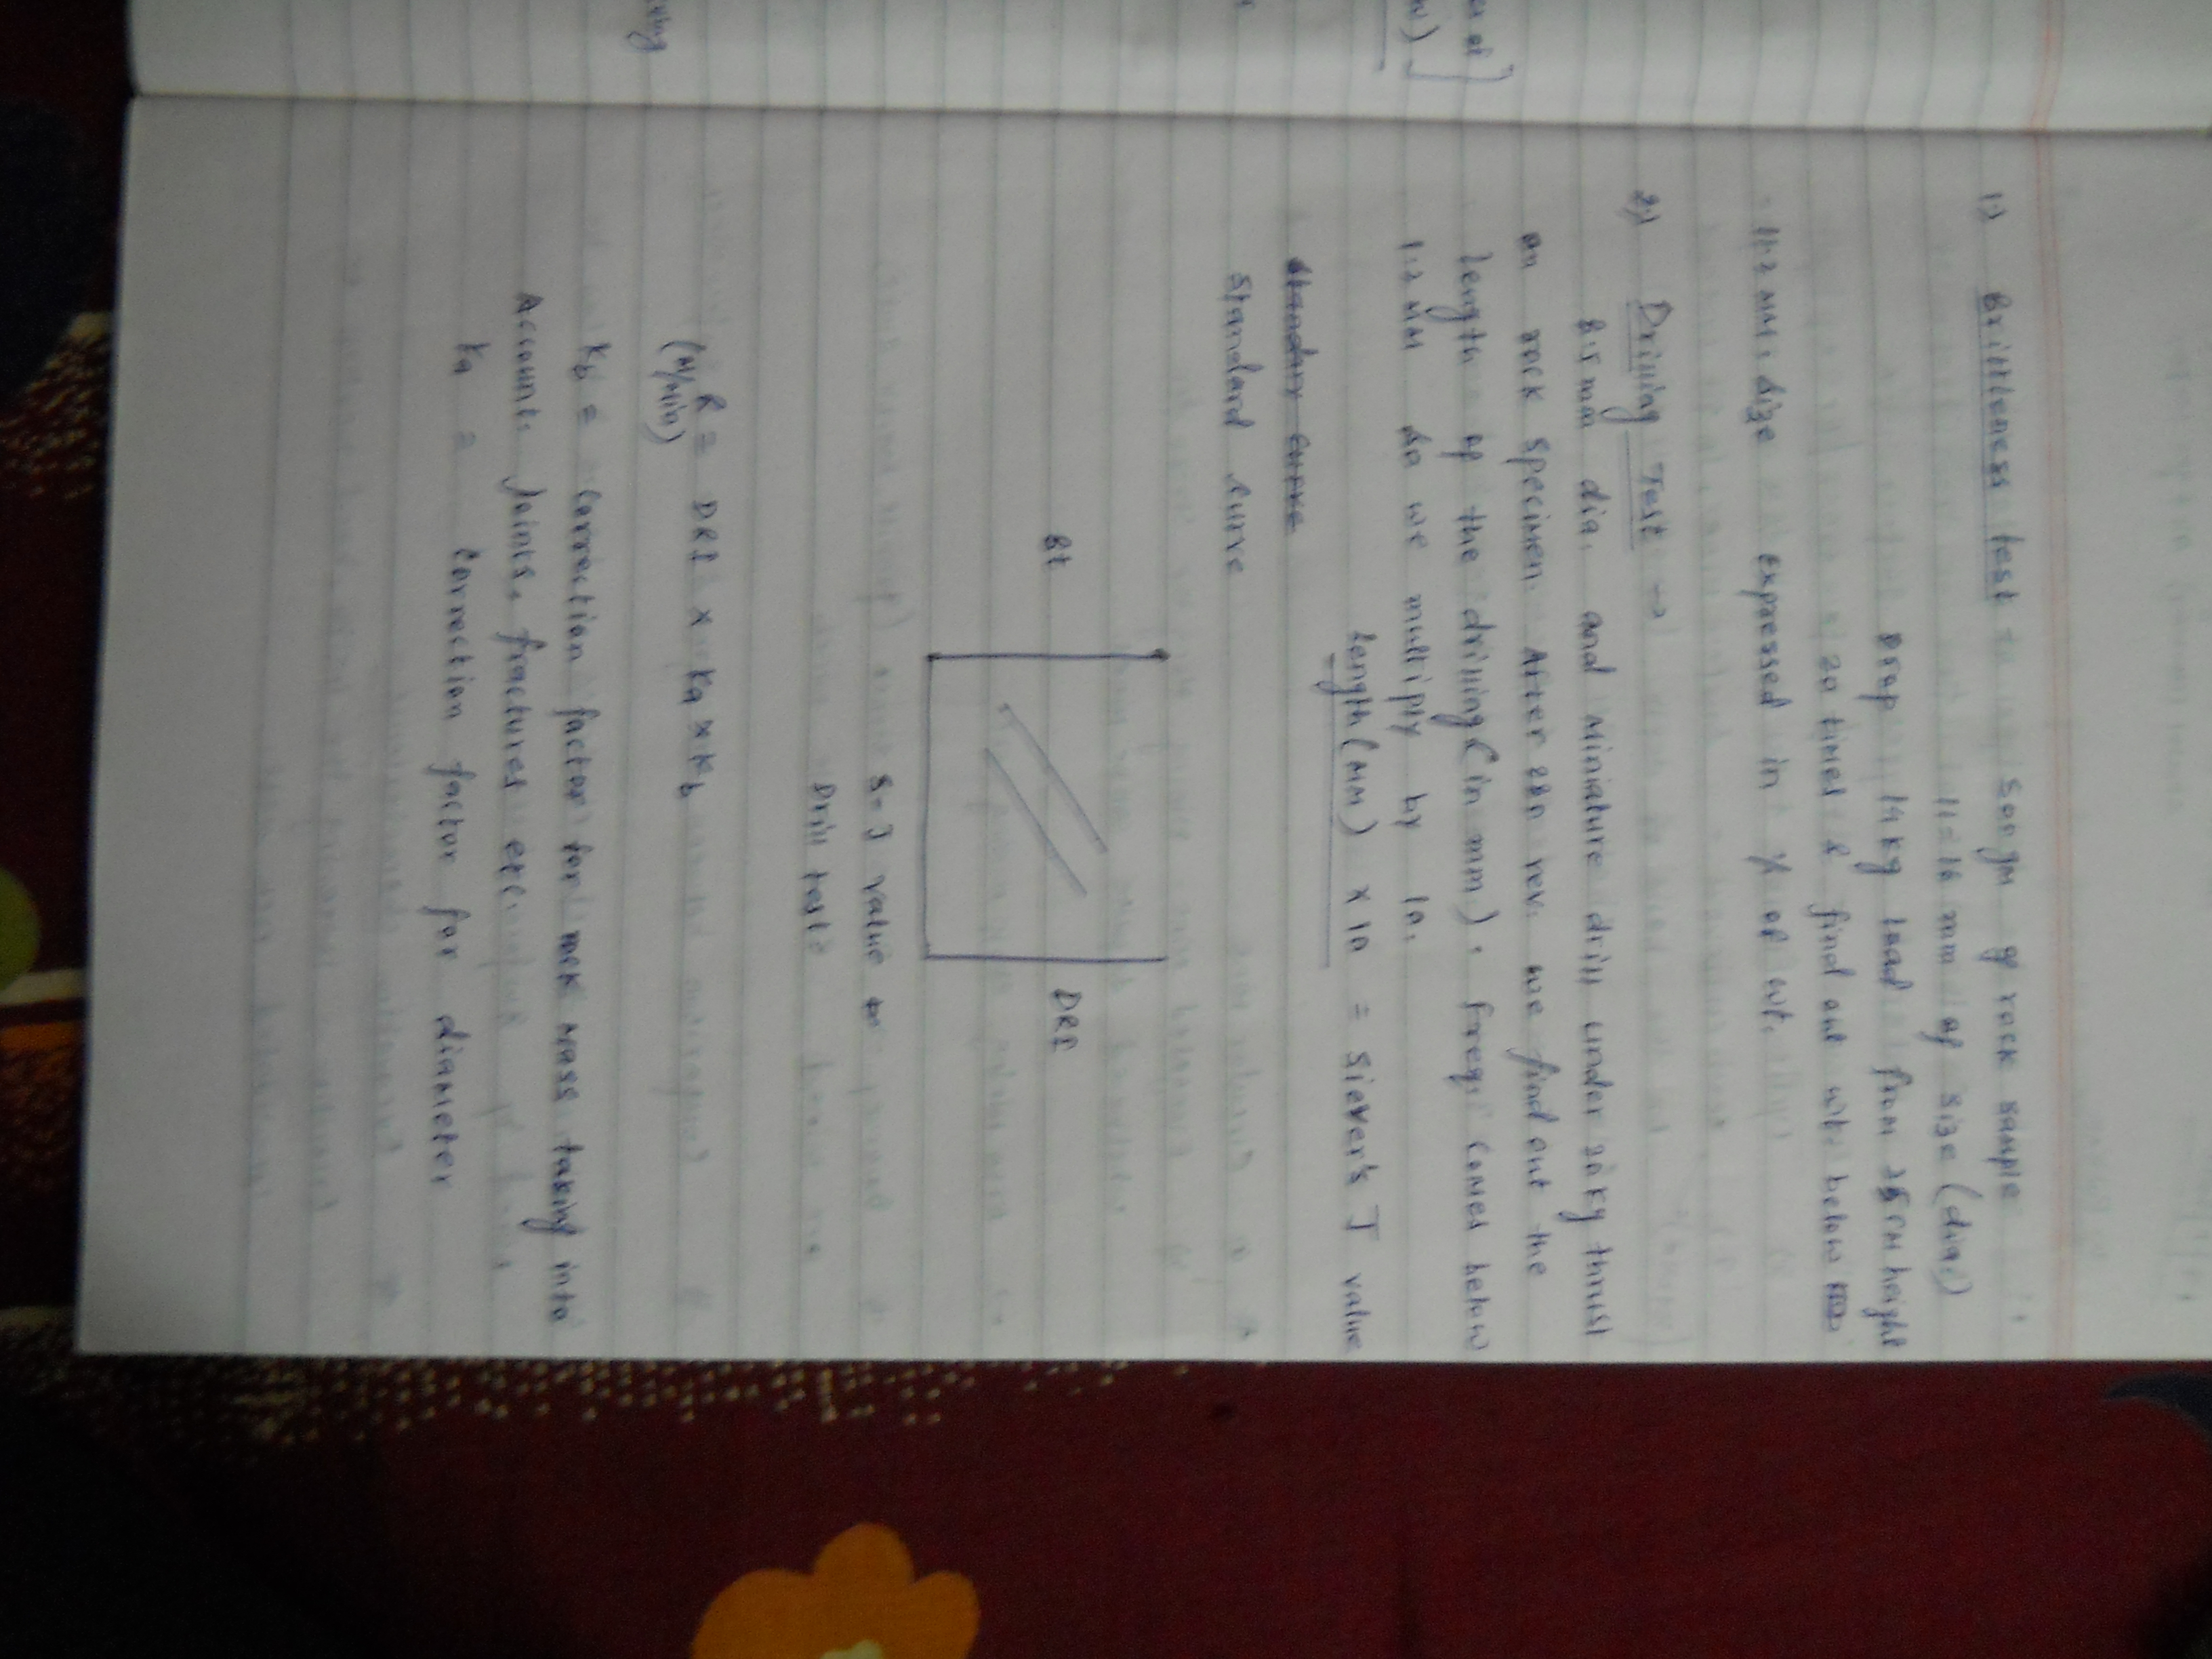 1) Brittleness test → 500 gm of rock sample
11-16 mm of size (dia.)
Drop 14 kg load from 25 cm height
20 times & find out wt. below
11.2 mm. size expressed in % of wt.
2) Drilling Test →
8.5 mm dia. and miniature drill under 20 kg thrust
on rock specimen. After 280 rev. we find out the
length of the drilling (in mm). freq. comes below
1.2 mm so we multiply by 10.
Length (mm) × 10 = Siever's J value
Standary curve
Standard curve
Bt
DRI
S-J value
Drill test
R = DRI × Ka × Kb
(m/min)
Kb = Correction factor for rock mass taking into
Account. Joints, fractures etc.
Ka = Correction factor for diameter